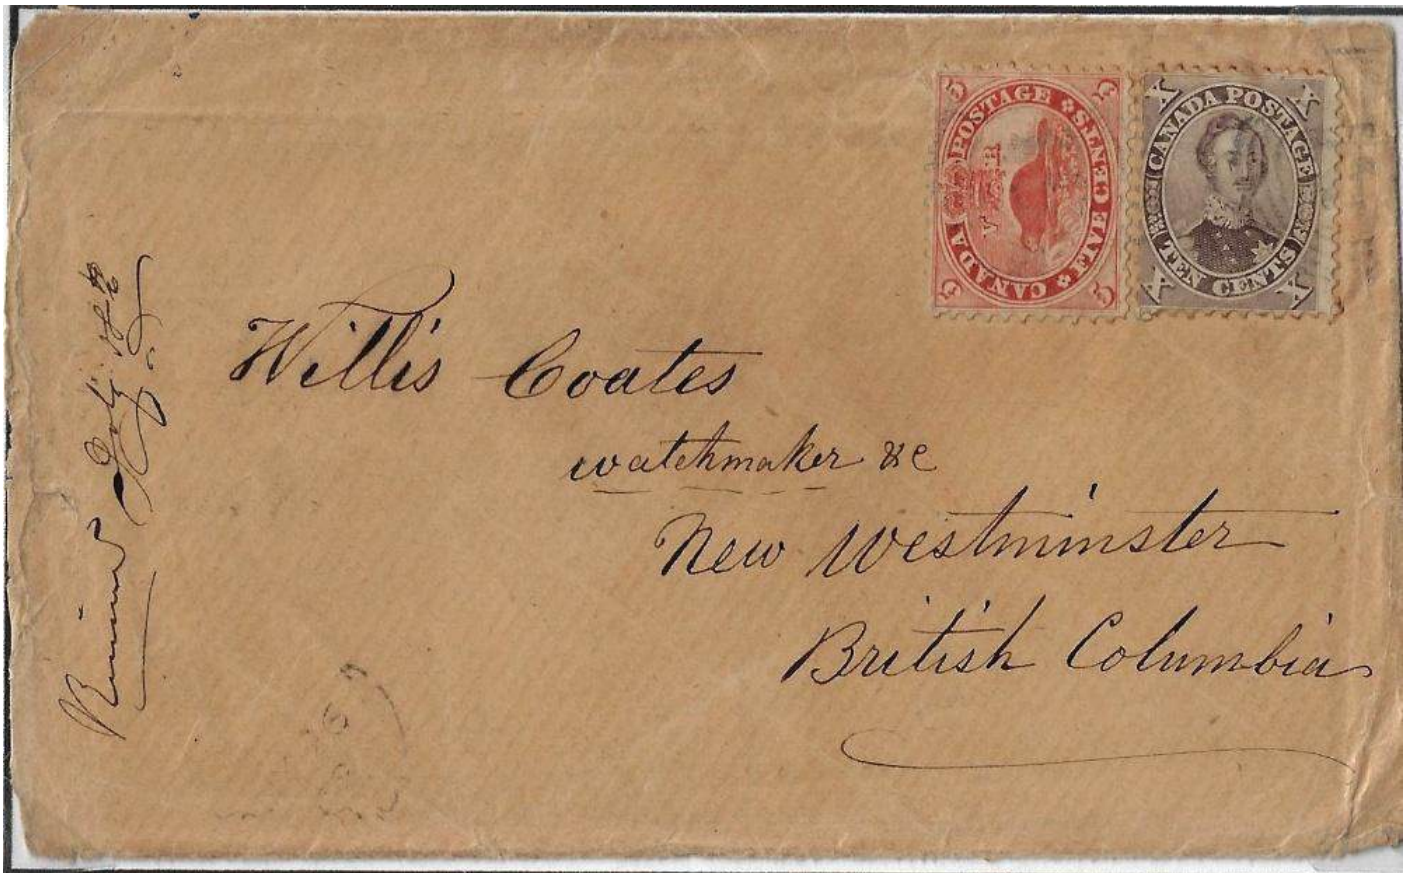 CANADA POSTAGE
FIVE CENTS
V R
5 5 5 5
CANADA POSTAGE
TEN CENTS
X X X X
Willis Coates
watchmaker &c
New Westminster
British Columbia